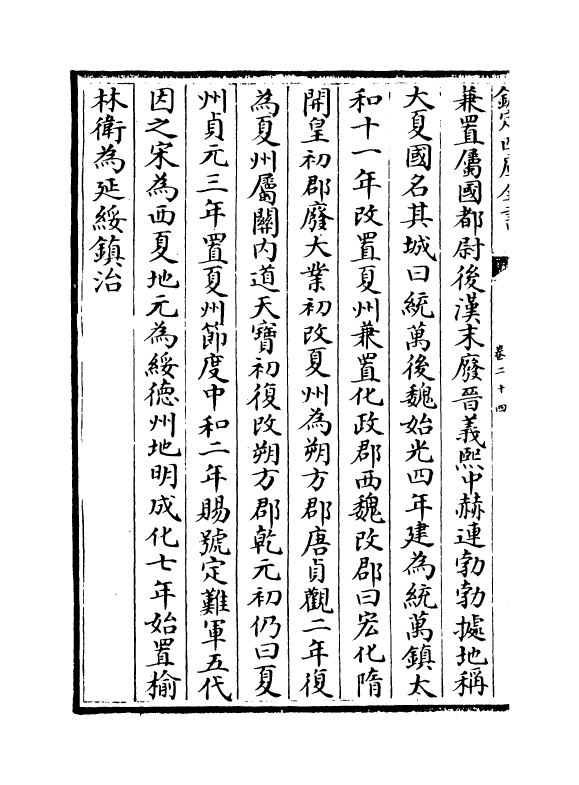 欽定四庫全書
卷二十四
兼置屬國都尉後漢末廢晉義熙中赫連勃勃據地稱
大夏國名其城曰統萬後魏始光四年建為統萬鎮太
和十一年改置夏州兼置化政郡西魏改郡曰宏化隋
開皇初郡廢大業初改夏州為朔方郡唐貞觀二年復
為夏州屬關内道天寶初復改朔方郡乾元初仍曰夏
州貞元三年置夏州節度中和二年賜號定難軍五代
因之宋為西夏地元為綏德州地明成化七年始置榆
林衛為延綏鎮治